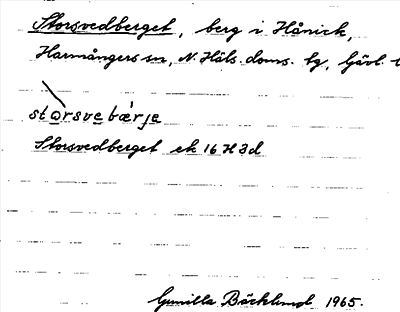 Storsvedberget, berg i Hånick,
Harmångers sn, N. Häls. doms. tg, Gävl. l
storsvebärje
Storsvedberget ek 16 H 3d
Gunilla Bäcklund 1965.